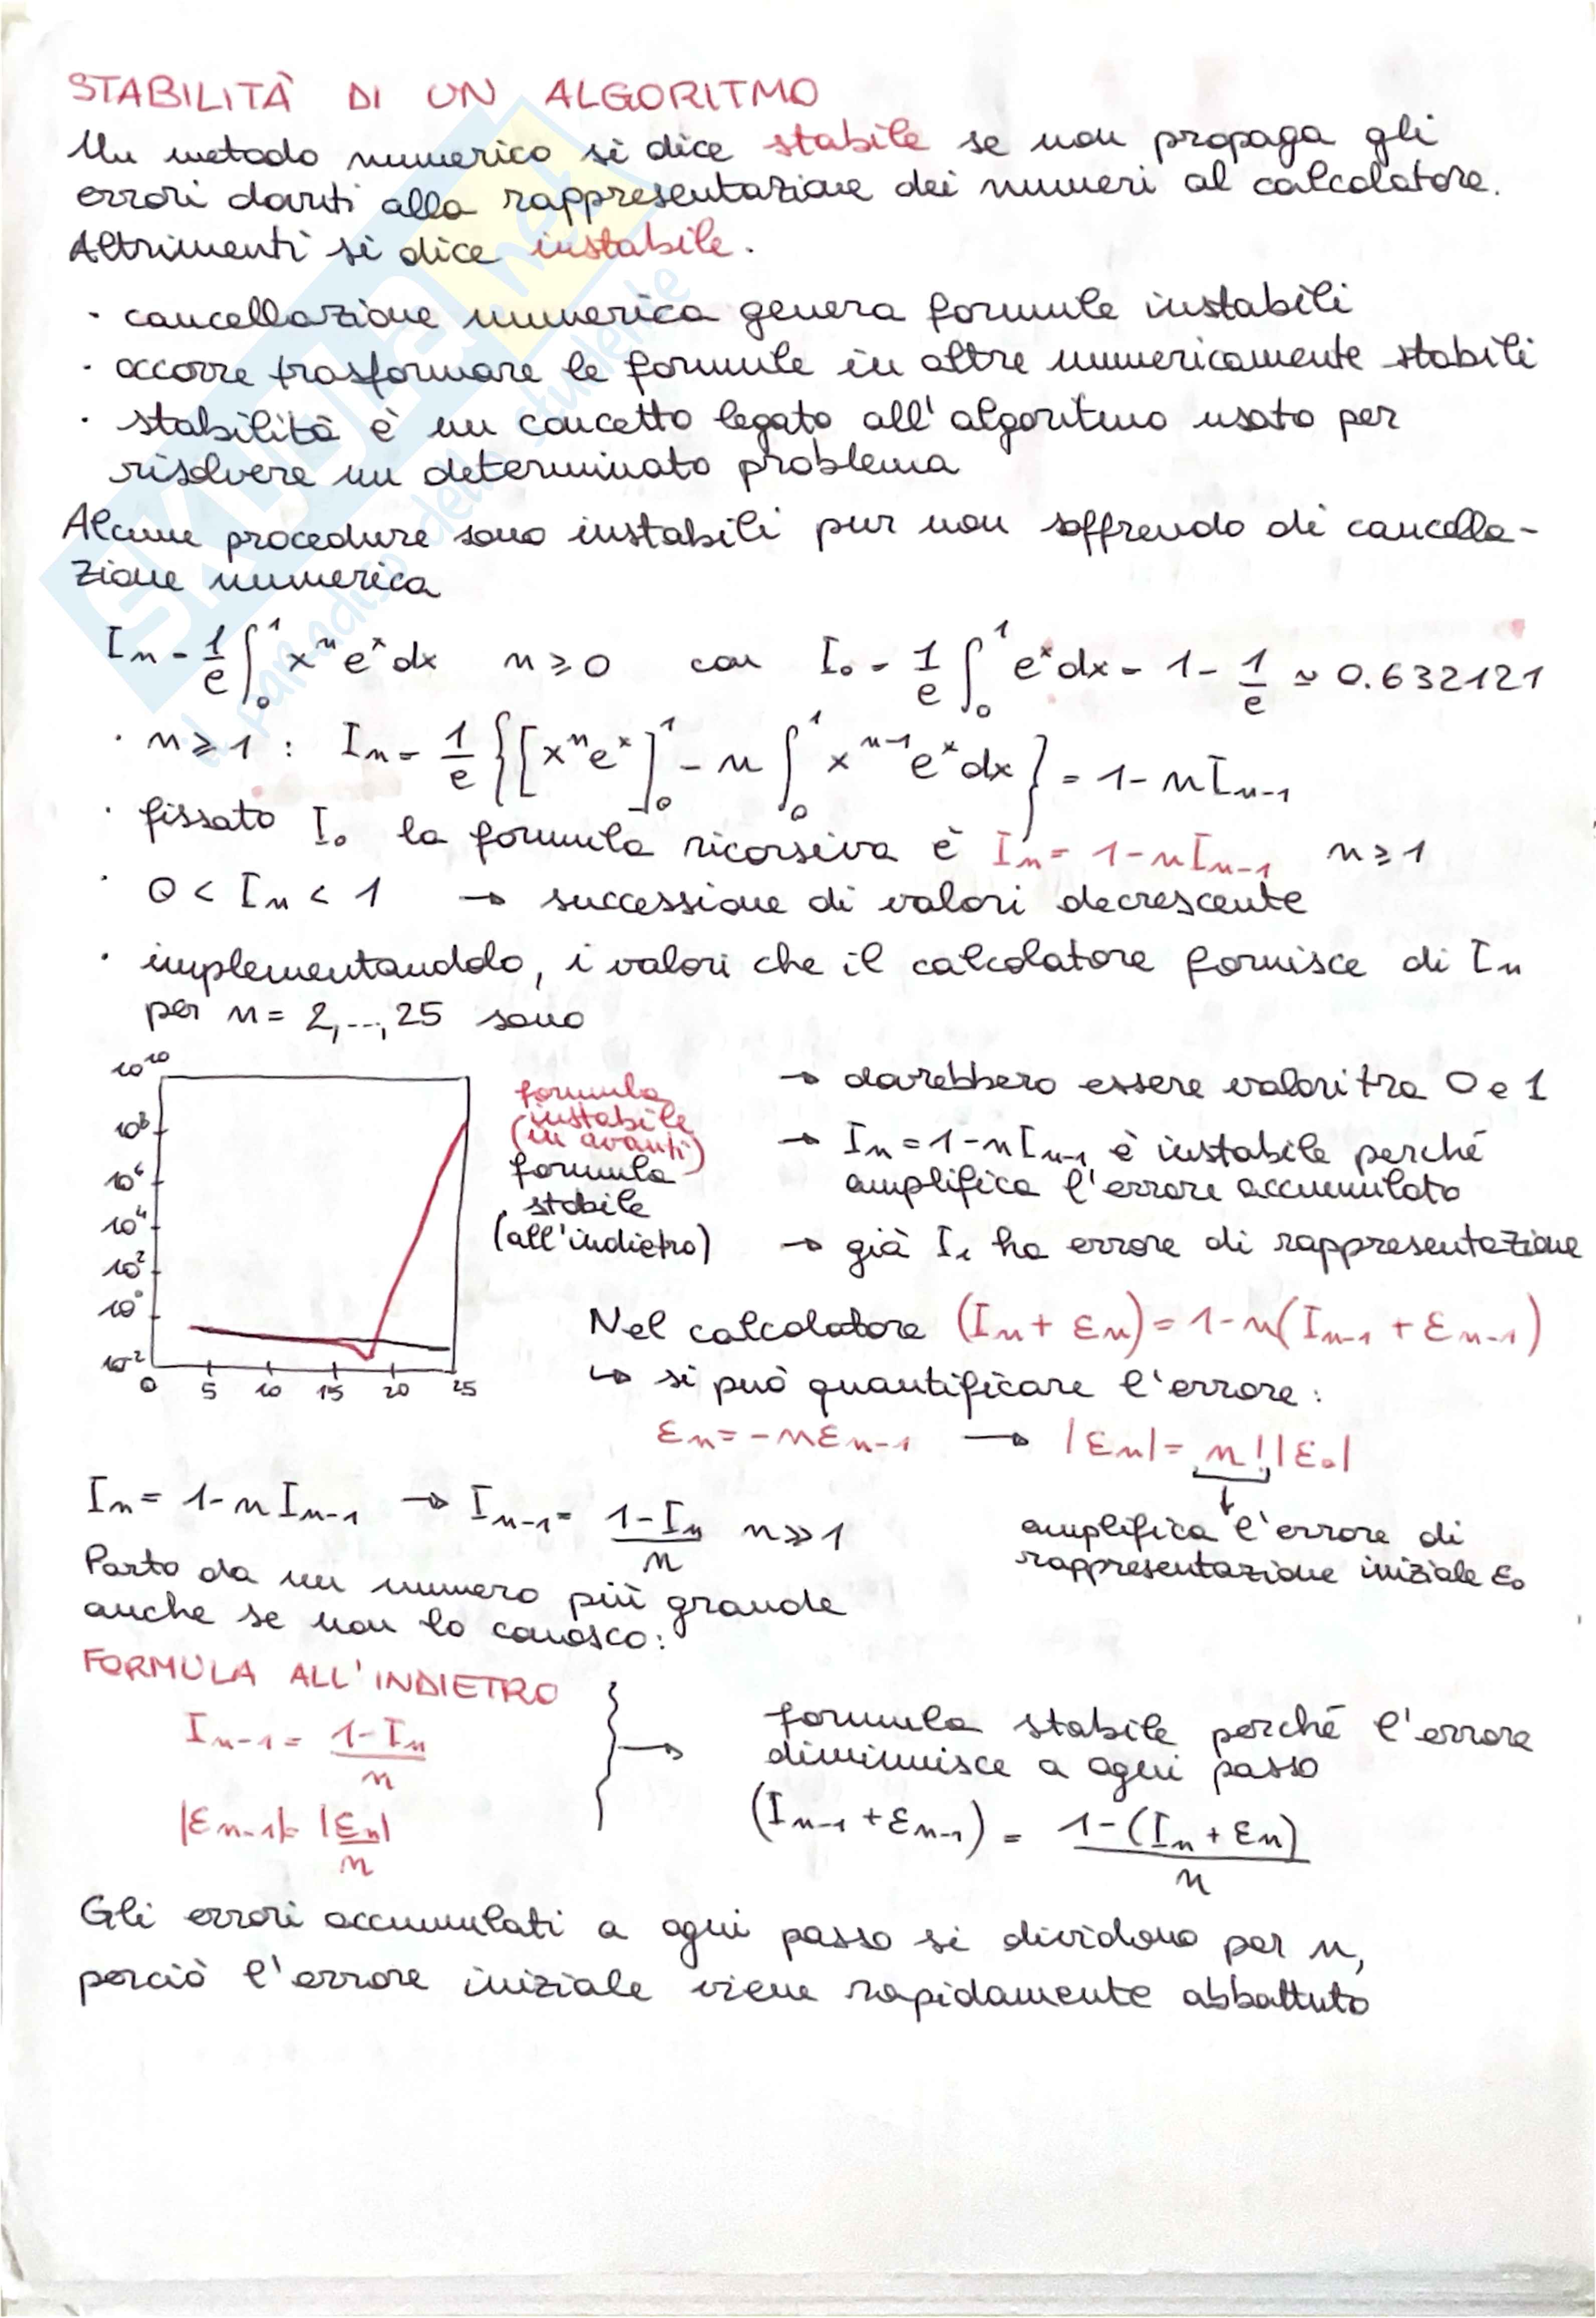 STABILITÀ DI UN ALGORITMO
Un metodo numerico si dice stabile se non propaga gli
errori dovuti alla rappresentazione dei numeri al calcolatore.
Altrimenti si dice instabile.
· cancellazione numerica genera formule instabili
· occorre trasformare le formule in altre numericamente stabili
· stabilità è un concetto legato all'algoritmo usato per
risolvere un determinato problema
Alcune procedure sono instabili pur non soffrendo di cancella-
zione numerica
Iₙ = 1/e ∫₀¹ xⁿeˣdx n ≥ 0 con I₀ = 1/e ∫₀¹ eˣdx = 1 - 1/e ≃ 0.632121
· n ≥ 1 : Iₙ = 1/e {[xⁿeˣ]₀¹ - n ∫₀¹ xⁿ⁻¹eˣdx} = 1 - nIₙ₋₁
· fissato I₀ la formula ricorsiva è Iₙ = 1 - nIₙ₋₁ n ≥ 1
· 0 < Iₙ < 1 → successione di valori decrescente
· implementandolo, i valori che il calcolatore fornisce di Iₙ
per n = 2,...,25 sono
10¹⁰
10⁸
10⁶
10⁴
10²
10⁰
10⁻²
0 5 10 15 20 25
formula
instabile
(in avanti)
formula
stabile
(all'indietro)
→ dovrebbero essere valori tra 0 e 1
→ Iₙ = 1 - nIₙ₋₁ è instabile perché
amplifica l'errore accumulato
→ già I₁ ha errore di rappresentazione
Nel calcolatore (Iₙ + εₙ) = 1 - n(Iₙ₋₁ + εₙ₋₁)
↳ si può quantificare l'errore:
εₙ = -nεₙ₋₁ → |εₙ| = n!|ε₀|
amplifica l'errore di
rappresentazione iniziale ε₀
Iₙ = 1 - nIₙ₋₁ → Iₙ₋₁ = (1 - Iₙ)/n n ≫ 1
Parto da un numero più grande
anche se non lo conosco:
FORMULA ALL'INDIETRO
Iₙ₋₁ = (1 - Iₙ)/n
|εₙ₋₁| = |εₙ|/n
formula stabile perché l'errore
diminuisce a ogni passo
(Iₙ₋₁ + εₙ₋₁) = (1 - (Iₙ + εₙ))/n
Gli errori accumulati a ogni passo si dividono per n,
perciò l'errore iniziale viene rapidamente abbattuto
SKUOLA.net
il paradiso dello studente